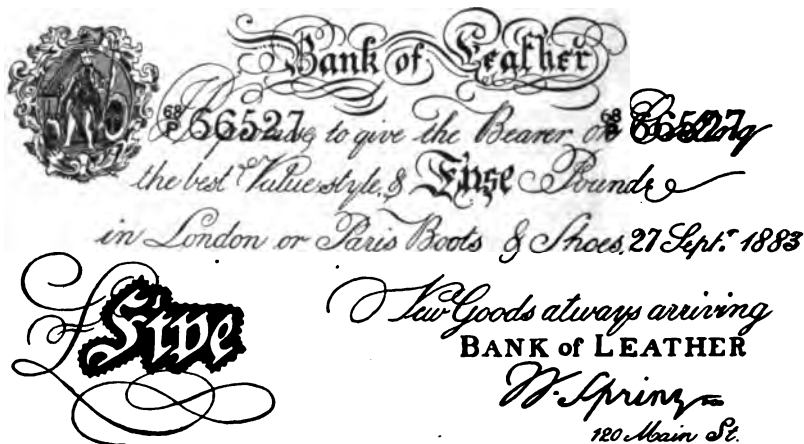 Bank of Leather
68/P 66527 promise to give the Bearer on 68/P 66527
the best Value, style, & Pounds
in London or Paris Boots & Shoes, 27 Sept. 1883
Five
New Goods always arriving
BANK of LEATHER
W. Spring
120 Main St.